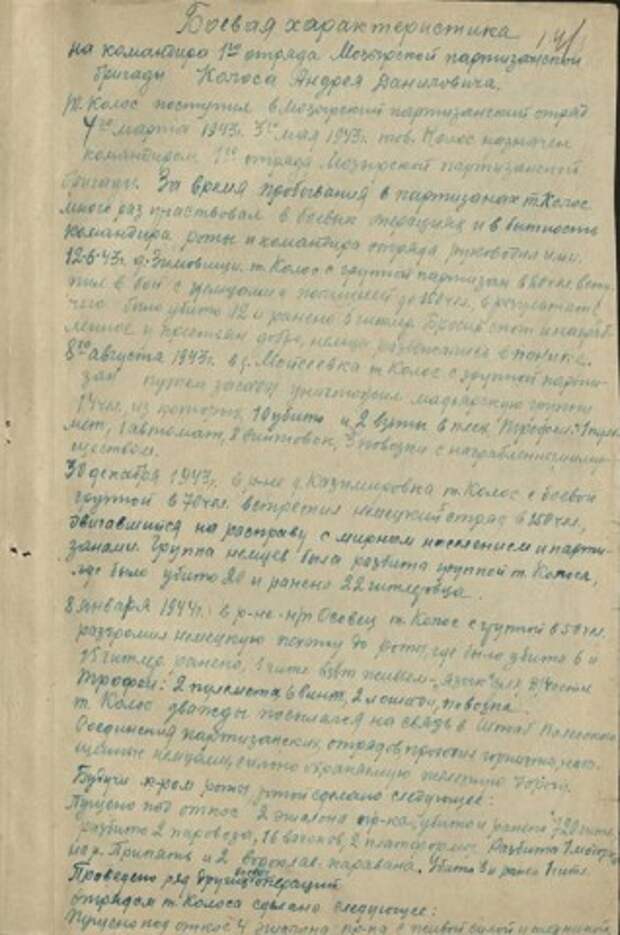 Боевая характеристика
141
на командира 1го отряда Мозырской партизанской
бригады Колоса Андрея Даниловича.
т. Колос поступил в Мозырский партизанский отряд
марта 1943г. 3го мая 1943г. тов. Колос назначен
командиром 1го отряда Мозырской партизанской
бригады. За время пребывания в партизанах т. Колос
много раз участвовал в боевых операциях и в бытность
командира роты и командира отряда руководил ими.
12-6-43г. д. Зимовищи т. Колос с группой партизан в чел. всту-
пил в бой с немцами и полицией до чел, в результате
чего было убито 12 и ранено гитлер. Бросив скот и награб-
ленное у крестьян добро, немцы разбежались в панике.
8го августа 1943г. в д. Мойсеевка т. Колос с группой парти-
зан путем засады уничтожил мадьярскую группу
чел, из которых 10 убито и 2 взяты в плен. Трофеи: 1 пуле-
мет, 1 автомат, 8 винтовок, 3 повозки с награбленным иму-
ществом.
30 декабря 1943г. в р-не д. Казимировка т. Колос с боевой
группой в 70 чел. встретил немецкий отряд в чел,
двигавшийся на расправу с мирным населением и парти-
занами. Группа немцев была разбита группой т. Колоса,
где было убито 20 и ранено 22 гитлеровца.
8 января 1944г. в р-не н/п Осовец т. Колос с группой в 50 чел.
разгромил немецкую пехоту до роты, где было убито 6 и
гитлер. ранено, 1 гитл. взят живьем "язык" для в/части
Трофеи: 2 пулемета, 6 винт, 2 лошади, повозка.
т. Колос дважды посылался на связь в Штаб Полесского
Соединения партизанских отрядов
немцами, сильно охраняемую железную дорогу.
Будучи к-ром роты, ротой сделано следующее:
Пущено под откос 2 эшелона пр-ка, убито и ранено 120 гитл.
разбито 2 паровоза, 16 вагонов, 2 платформы. Разбита 1
на р. Припять и 2 каравана. Убито и ранен 1 гитл.
Проведено ряд других боевых операций
отрядом т. Колоса сделано следующее:
Пущено под откос 4 эшелона пр-ка с живой силой и